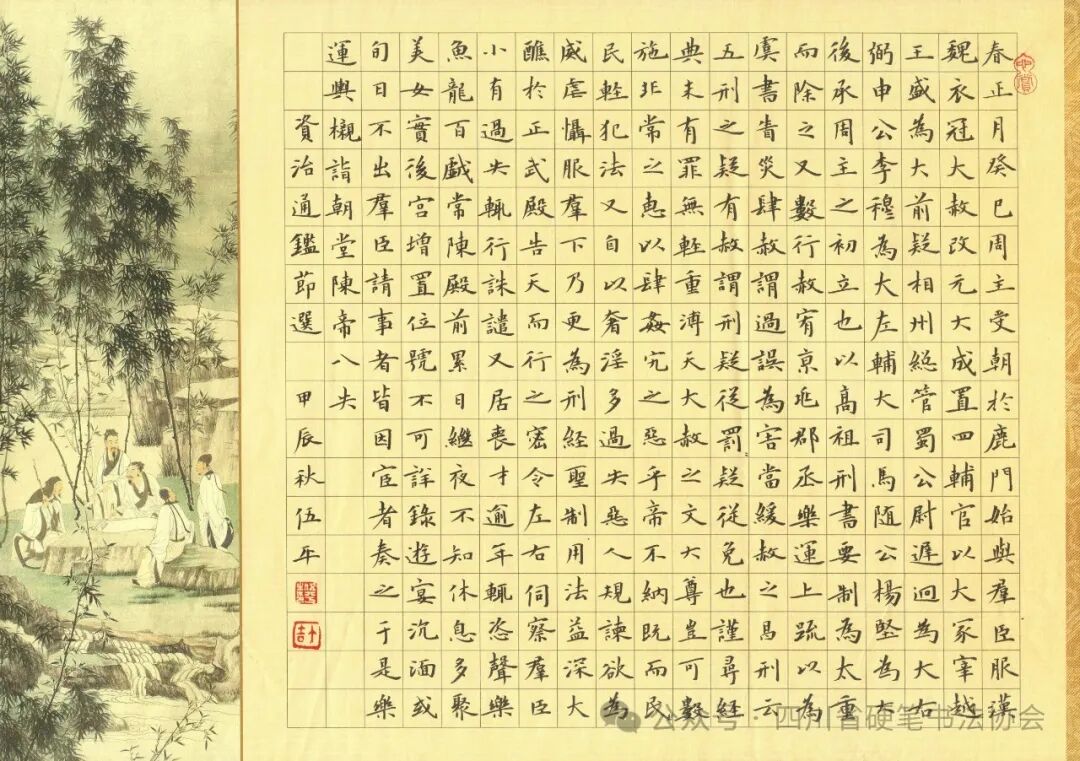 春正月癸巳周主受朝於鹿門始與羣臣服漢
魏衣冠大赦改元大成置四輔官以大冢宰越
王盛為大前疑相州總管蜀公尉遲迥為大右
弼申公李穆為大左輔大司馬随公楊堅為大
後承周主之初立也以高祖刑書要制為太重
而除之又數行赦宥京兆郡丞樂運上疏以為
虞書眚災肆赦謂過誤為害當緩赦之呂刑云
五刑之疑有赦謂刑疑從罰疑從免也謹尋經
典未有罪無輕重溥天大赦之文大尊豈可數
施非常之惠以肆姦宄之惡乎帝不納既而民
民輕犯法又自以奢淫多過失惡人規諫欲為
威虐懾服羣下乃更為刑經聖制用法益深大
醮於正武殿告天而行之密令左右伺察羣臣
小有過失輒行誅譴又居喪才逾年輒恣聲樂
魚龍百戲常陳殿前累日繼夜不知休息多聚
美女實後宮增置位號不可詳錄遊宴沉湎或
旬日不出羣臣請事者皆因宦者奏之于是樂
運輿櫬詣朝堂陳帝八失
資治通鑑節選 甲辰秋伍年
公众号·四川省硬笔书法协会